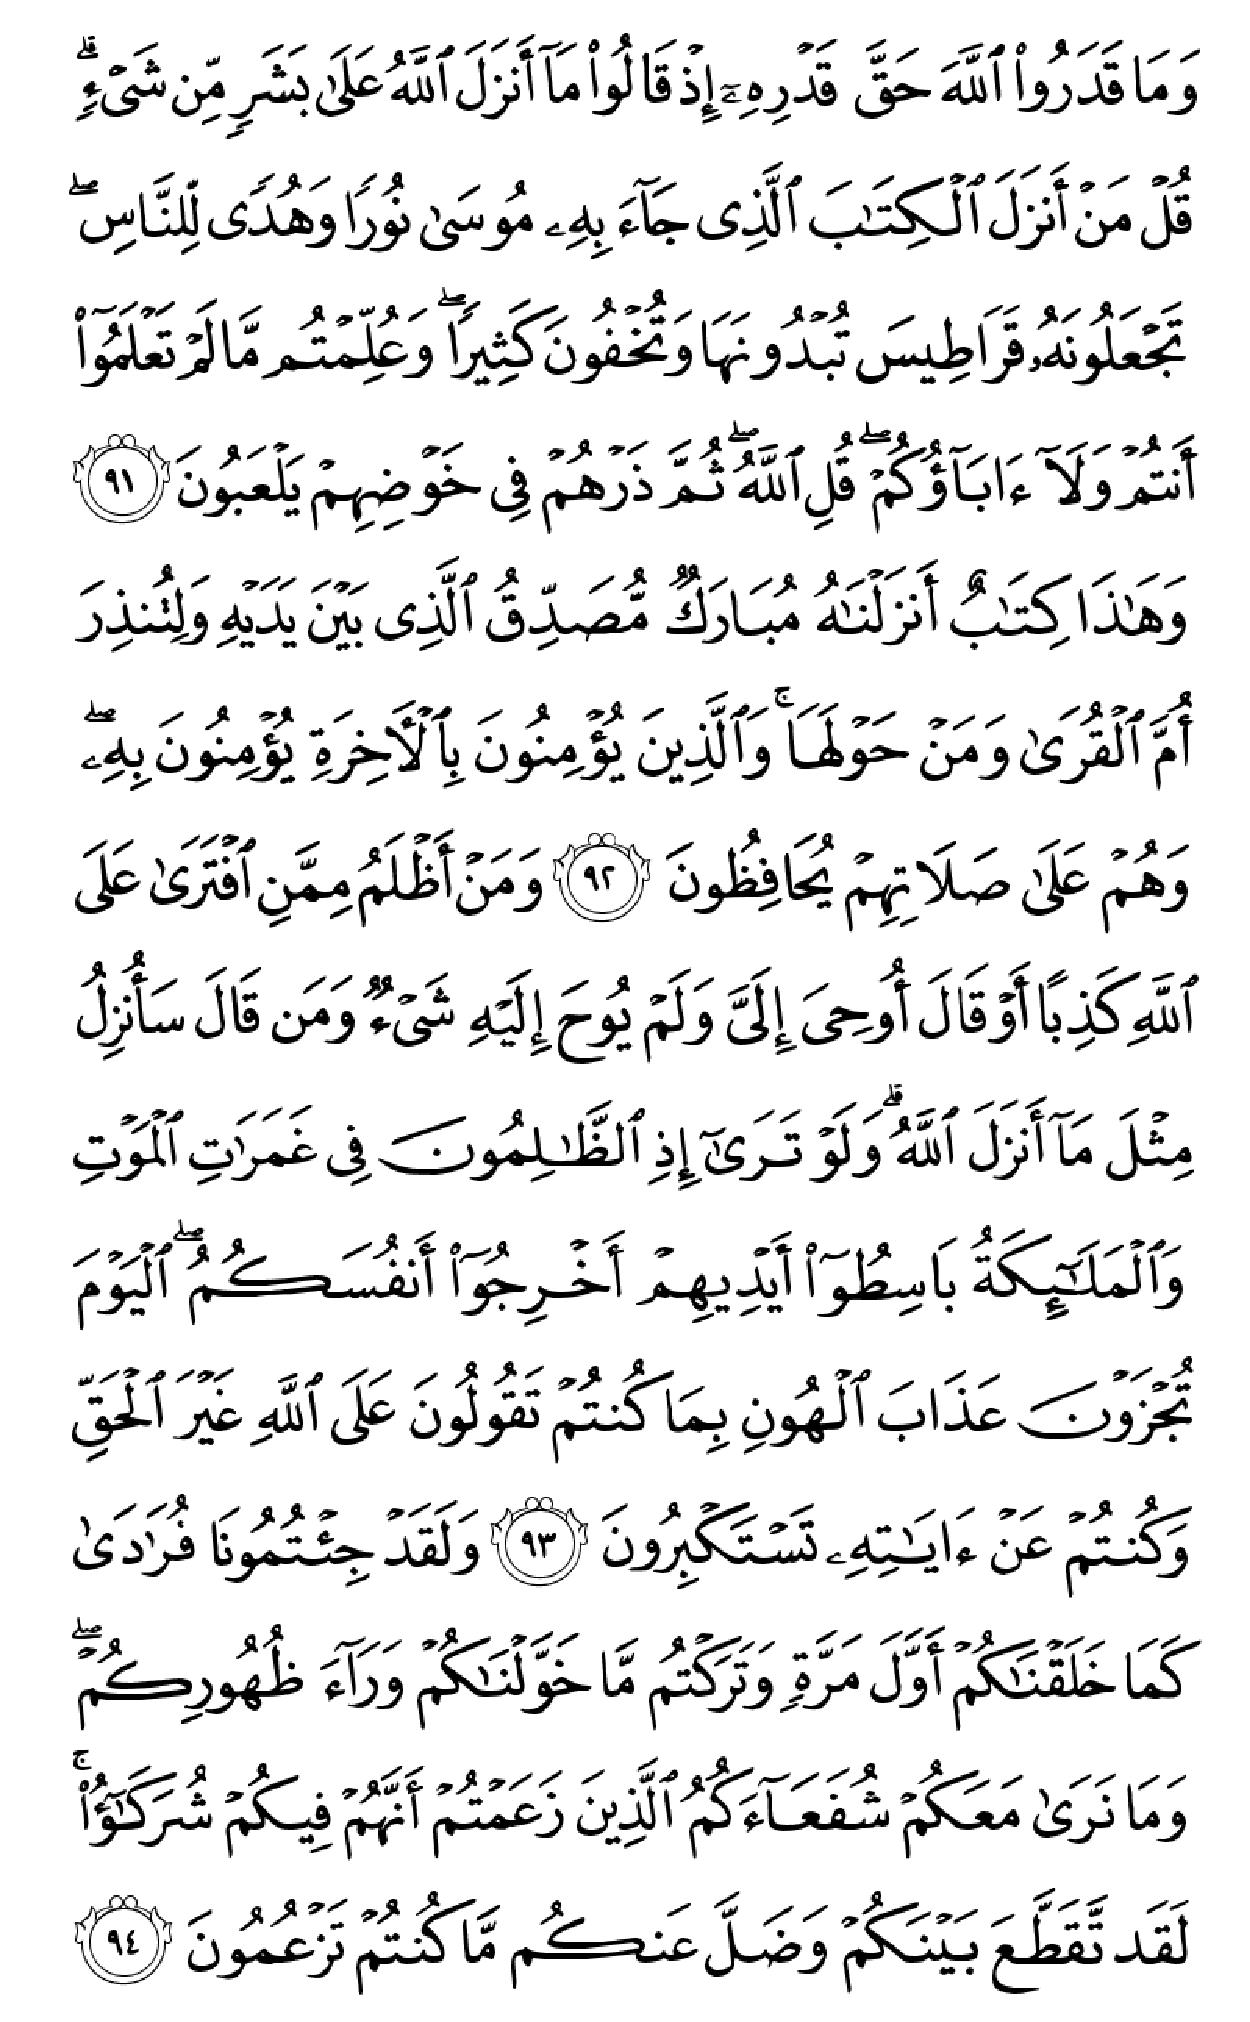 وَمَا قَدَرُوا۟ ٱللَّهَ حَقَّ قَدْرِهِۦٓ إِذْ قَالُوا۟ مَآ أَنزَلَ ٱللَّهُ عَلَىٰ بَشَرٍ مِّن شَىْءٍ ۗ
قُلْ مَنْ أَنزَلَ ٱلْكِتَـٰبَ ٱلَّذِى جَآءَ بِهِۦ مُوسَىٰ نُورًا وَهُدًى لِّلنَّاسِ ۖ
تَجْعَلُونَهُۥ قَرَاطِيسَ تُبْدُونَهَا وَتُخْفُونَ كَثِيرًا ۖ وَعُلِّمْتُم مَّا لَمْ تَعْلَمُوٓا۟
أَنتُمْ وَلَآ ءَابَآؤُكُمْ ۖ قُلِ ٱللَّهُ ۖ ثُمَّ ذَرْهُمْ فِى خَوْضِهِمْ يَلْعَبُونَ ٩١
وَهَـٰذَا كِتَـٰبٌ أَنزَلْنَـٰهُ مُبَارَكٌ مُّصَدِّقُ ٱلَّذِى بَيْنَ يَدَيْهِ وَلِتُنذِرَ
أُمَّ ٱلْقُرَىٰ وَمَنْ حَوْلَهَا ۚ وَٱلَّذِينَ يُؤْمِنُونَ بِٱلْـَٔاخِرَةِ يُؤْمِنُونَ بِهِۦ ۖ
وَهُمْ عَلَىٰ صَلَاتِهِمْ يُحَافِظُونَ ٩٢ وَمَنْ أَظْلَمُ مِمَّنِ ٱفْتَرَىٰ عَلَى
ٱللَّهِ كَذِبًا أَوْ قَالَ أُوحِىَ إِلَىَّ وَلَمْ يُوحَ إِلَيْهِ شَىْءٌ وَمَن قَالَ سَأُنزِلُ
مِثْلَ مَآ أَنزَلَ ٱللَّهُ ۗ وَلَوْ تَرَىٰٓ إِذِ ٱلظَّـٰلِمُونَ فِى غَمَرَٰتِ ٱلْمَوْتِ
وَٱلْمَلَـٰٓئِكَةُ بَاسِطُوٓا۟ أَيْدِيهِمْ أَخْرِجُوٓا۟ أَنفُسَكُمُ ۖ ٱلْيَوْمَ
تُجْزَوْنَ عَذَابَ ٱلْهُونِ بِمَا كُنتُمْ تَقُولُونَ عَلَى ٱللَّهِ غَيْرَ ٱلْحَقِّ
وَكُنتُمْ عَنْ ءَايَـٰتِهِۦ تَسْتَكْبِرُونَ ٩٣ وَلَقَدْ جِئْتُمُونَا فُرَٰدَىٰ
كَمَا خَلَقْنَـٰكُمْ أَوَّلَ مَرَّةٍ وَتَرَكْتُم مَّا خَوَّلْنَـٰكُمْ وَرَآءَ ظُهُورِكُمْ ۖ
وَمَا نَرَىٰ مَعَكُمْ شُفَعَآءَكُمُ ٱلَّذِينَ زَعَمْتُمْ أَنَّهُمْ فِيكُمْ شُرَكَـٰٓؤُا۟ ۚ
لَقَد تَّقَطَّعَ بَيْنَكُمْ وَضَلَّ عَنكُم مَّا كُنتُمْ تَزْعُمُونَ ٩٤